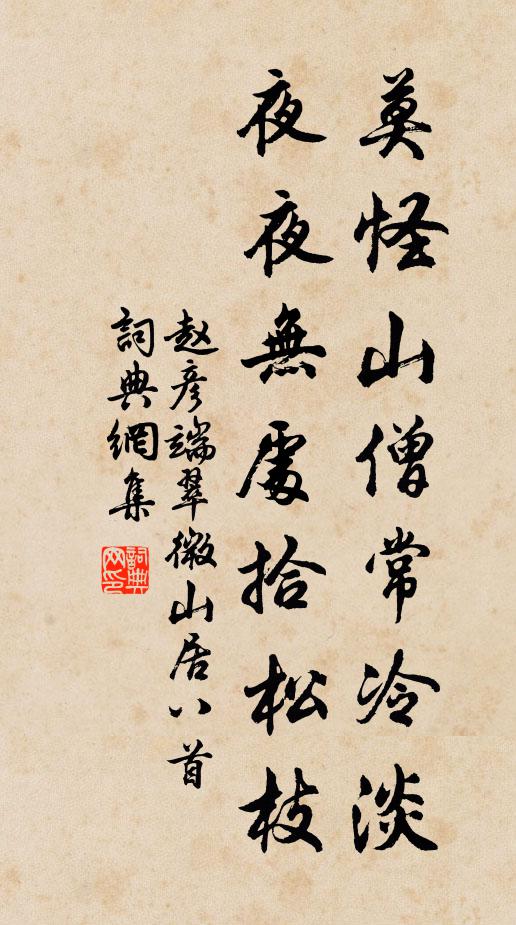 莫怪山僧常冷淡
夜夜無處拾松枝
赵彦端翠微山居八首
詞典網集
詞典网印